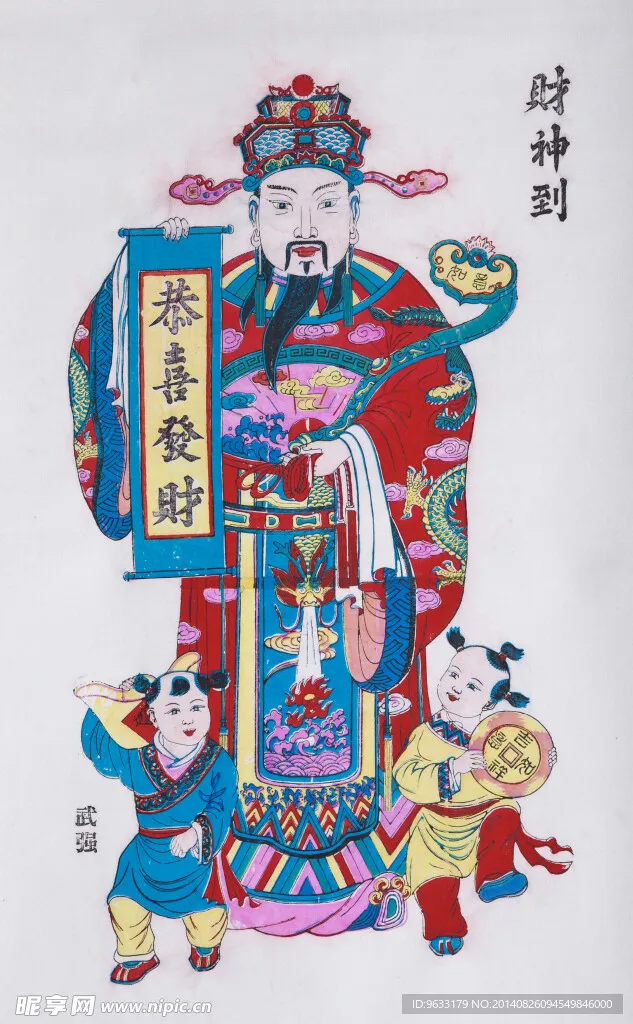 財神到
恭喜發財
如意
吉祥如寶
武强
昵享网 www.nipic.cn
ID:9633179 NO:20140826094549846000